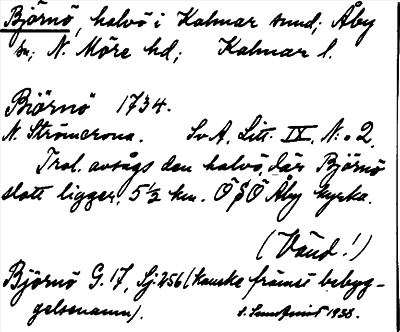 Björnö, halvö i Kalmar sund; Åby
sn; N. Möre hd; Kalmar l.
Biörnö 1734.
N. Strömcrona. SvA, Litt. IX, N:o 2.
Trol. avsågs den halvö, där Björnö
slott ligger, 5 ½ km. Ö S Ö Åby kyrka.
(Vänd!)
Björnö G. 17, Sj. 256 (kanske främst bebyg-
gelsenamn). 1938.